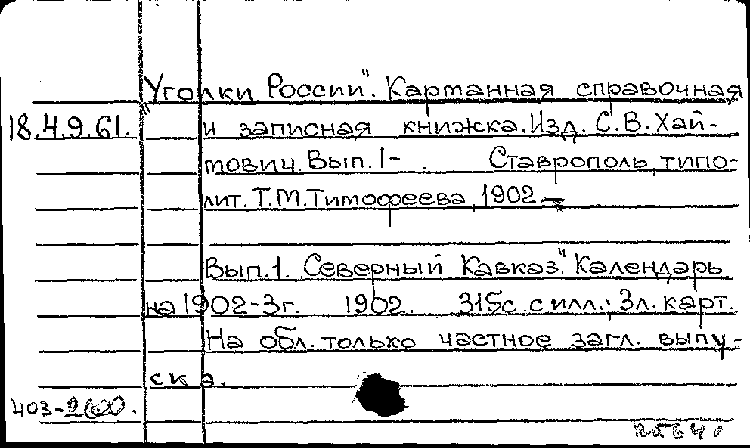 "Уголки России". Карманная справочная
18.4.9.61. и записная книжка. Изд. С.В. Хай-
тович. Вып. 1- . Ставрополь, типо-
лит. Т.М. Тимофеева, 1902 -
Вып. 1. Северный Кавказ." Календарь
на 1902-3г. 1902. 315с. с илл.; 3л. карт.
На обл. только частное загл. выпу-
ска.
403-2600.